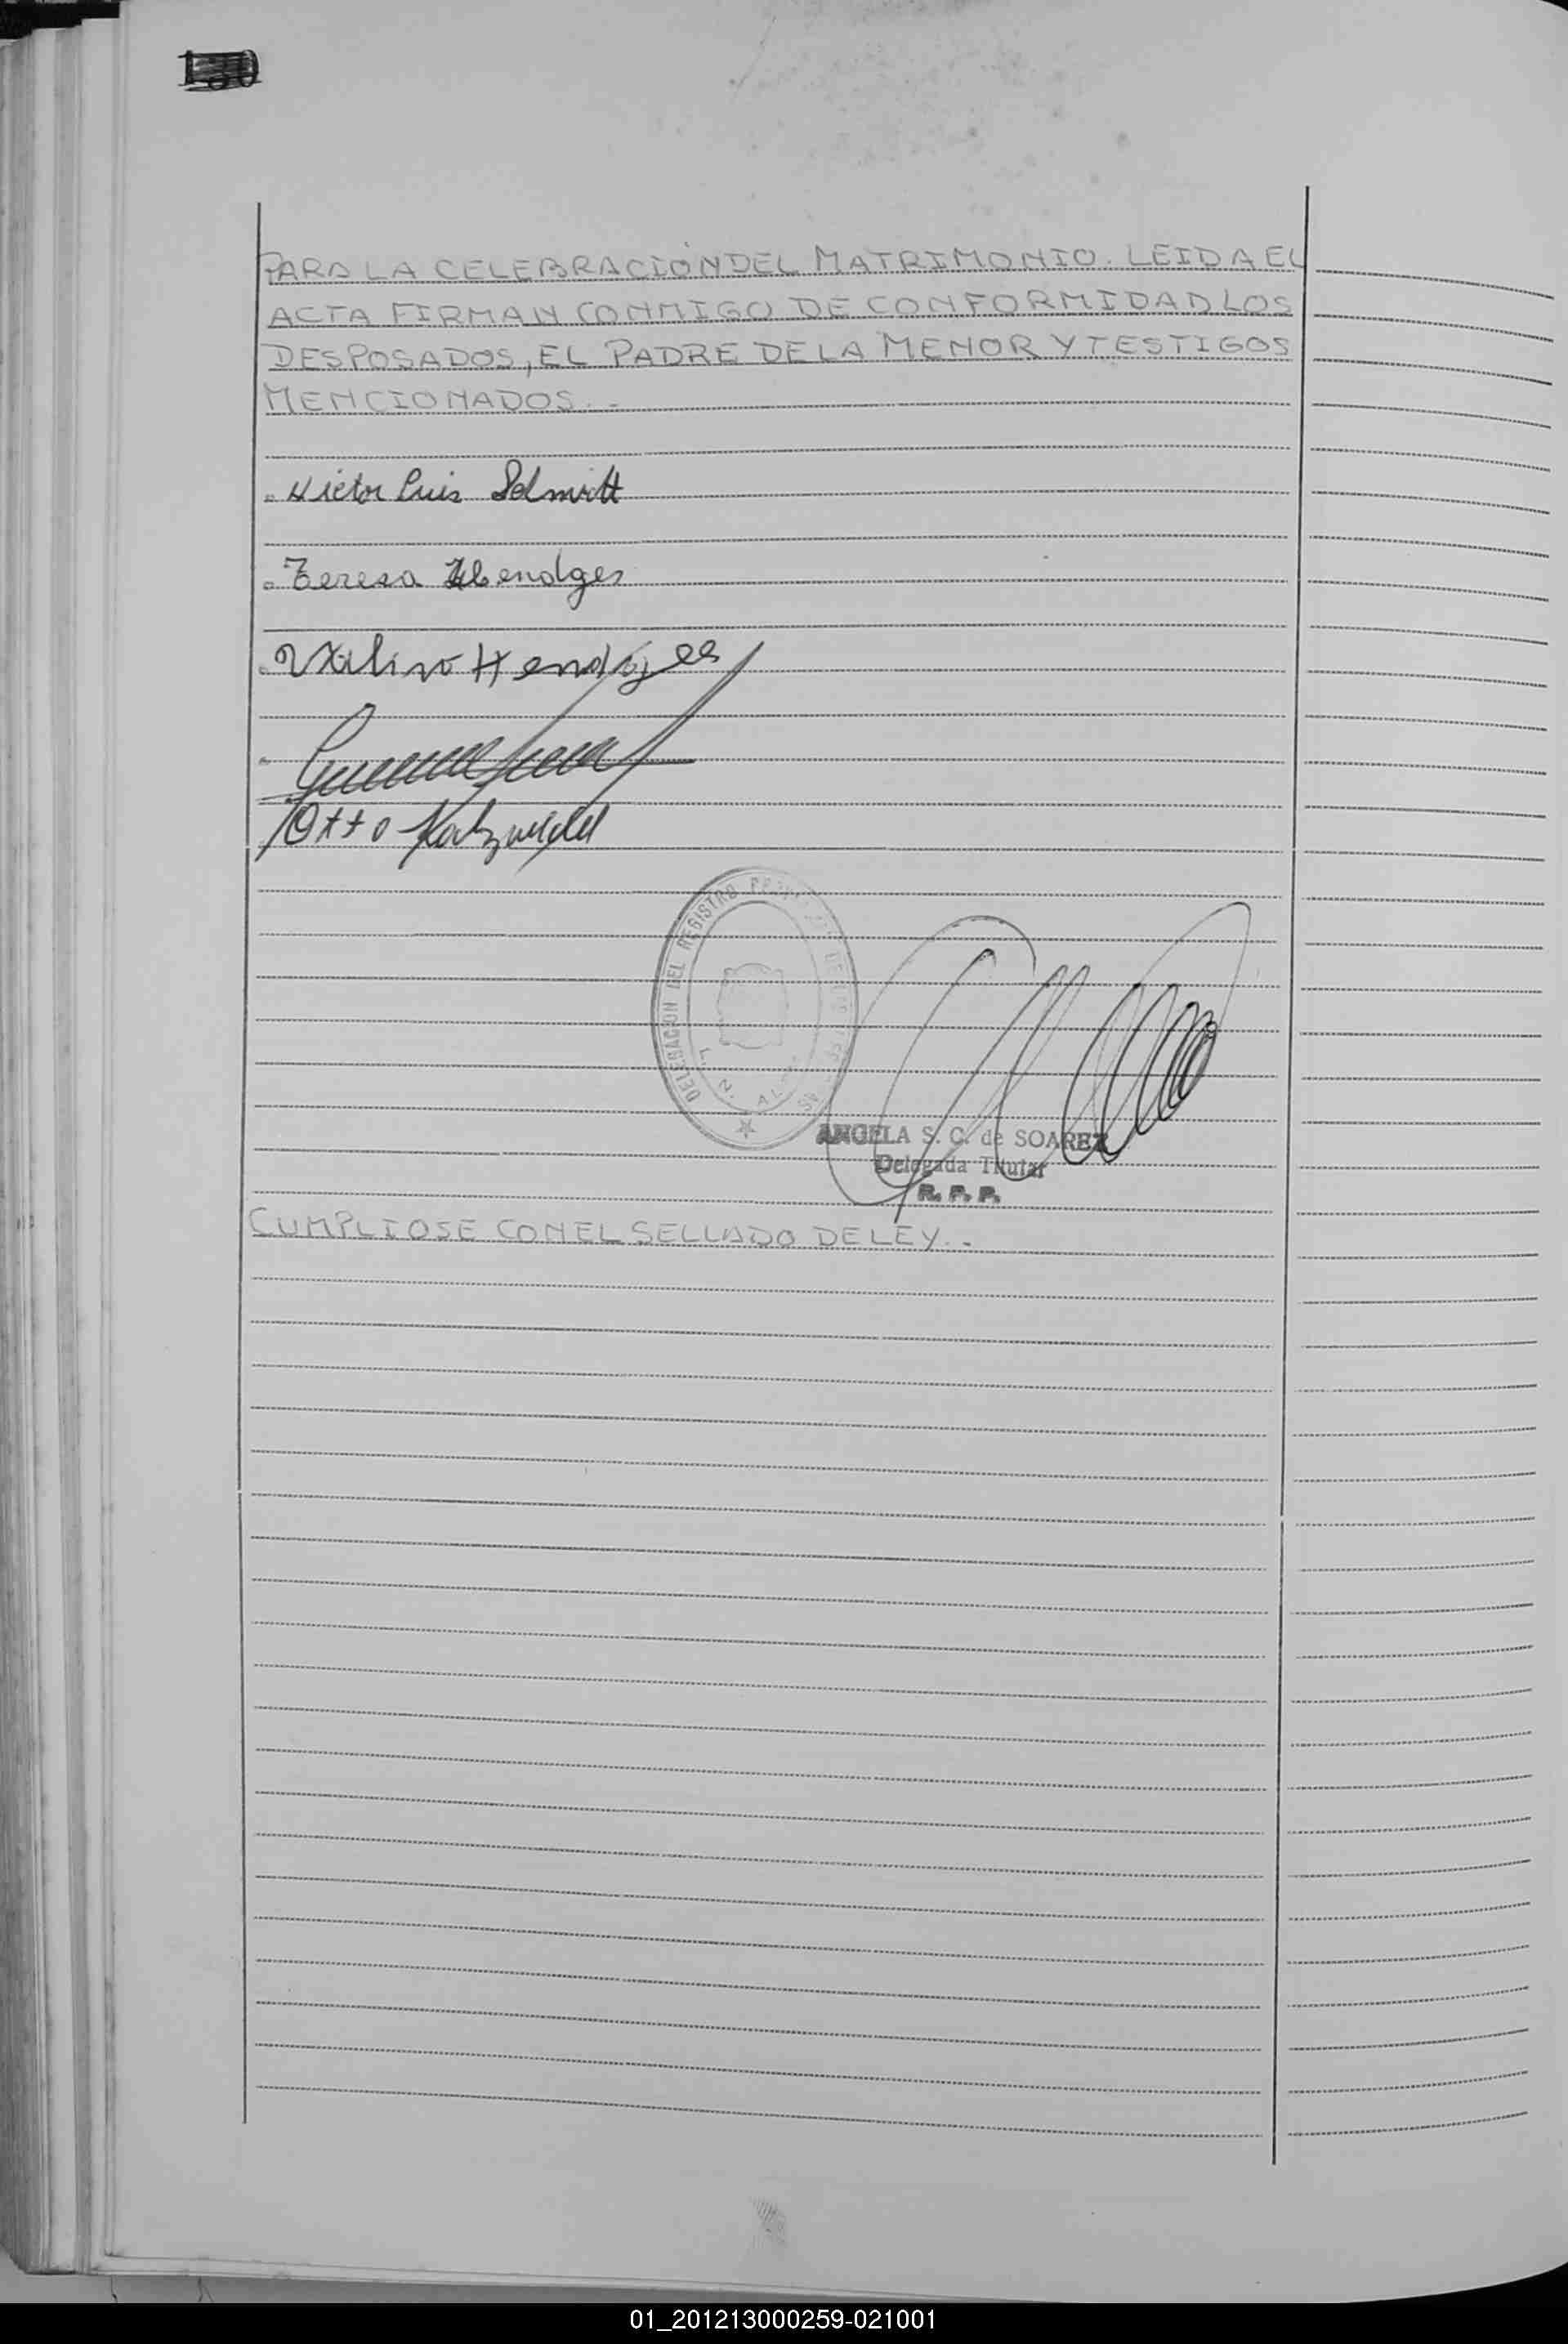 130
PARA LA CELEBRACIÓN DEL MATRIMONIO. LEIDA EL
ACTA FIRMAN CONMIGO DE CONFORMIDAD LOS
DESPOSADOS, EL PADRE DE LA MENOR Y TESTIGOS
MENCIONADOS.-
Victor Luis Schmitt
Teresa Hendges
Hendges
Otto
DELEGACION DEL REGISTRO
L. N. AL
ANGELA S. C. de SOAREZ
Delegada Titular
R. P. P.
CUMPLIOSE CON EL SELLADO DE LEY.-
01_201213000259-021001